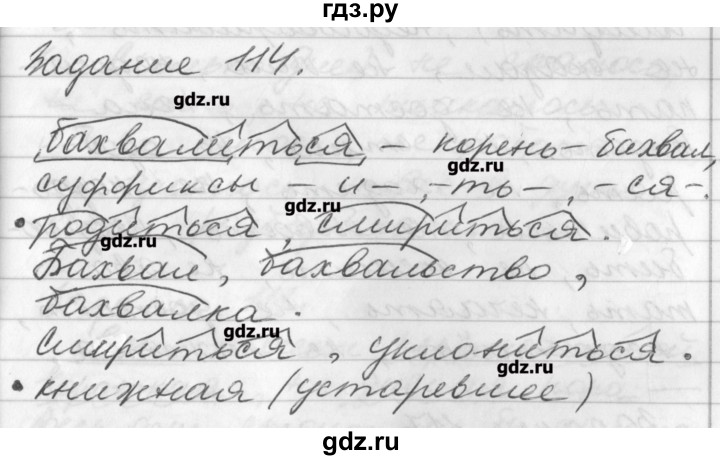 гдз.ру
Задание 114.
gdz.ru
бахвалиться – корень – бахвал,
gdz.ru
суффиксы – и – , – ть – , – ся –.
gdz.ru
• родиться, смириться.
gdz.ru
Бахвал, бахвальство,
бахвалка.
gdz.ru
смириться, уклониться.
gdz.ru
• книжная (устаревшее)
gdz.ru